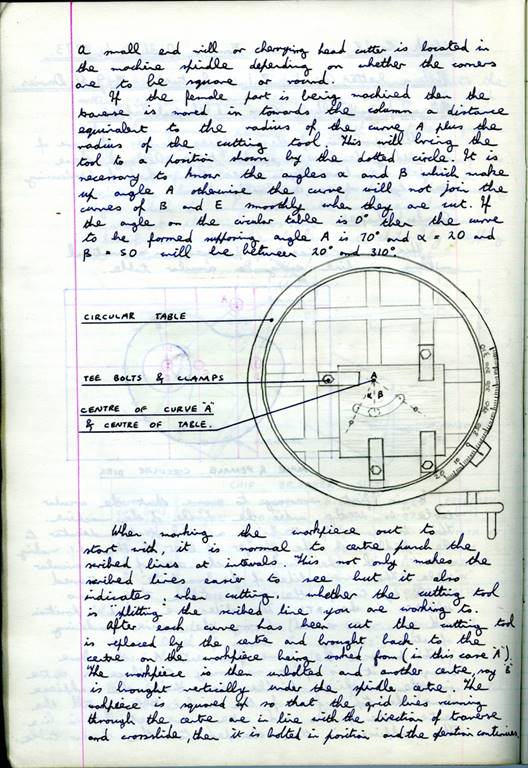 A small end mill or cherrying head cutter is located in
the machine spindle depending on whether the corners
are to be square or round.
If the female part is being machined then the
traverse is moved in towards the column a distance
equivalent to the radius of the curve A plus the
radius of the cutting tool. This will bring the
tool to a position shown by the dotted circle. It is
necessary to know the angles α and β which make
up angle A otherwise the curve will not join the
curves of B and E smoothly when they are cut. If
the angle on the circular table is 0° then the curve
to be formed supposing angle A is 70° and α = 20 and
β = 50 will be between 20° and 310°.
CIRCULAR TABLE
TEE BOLTS & CLAMPS
CENTRE OF CURVE "A"
& CENTRE OF TABLE.
A
α β
20 10
When marking the workpiece out to
start with, it is normal to centre punch the
scribed lines at intervals. This not only makes the
scribed lines easier to see but it also
indicates, when cutting, whether the cutting tool
is "splitting the scribed line" you are working to.
After each curve has been cut the cutting tool
is replaced by the centre and brought back to the
centre on the workpiece being worked from (in this case "A").
The workpiece is then unbolted and another centre, say "B"
is brought vertically under the spindle centre. The
workpiece is squared up so that the grid lines running
through the centre are in line with the direction of traverse
and crosslide, then it is bolted in position and the operation continues.